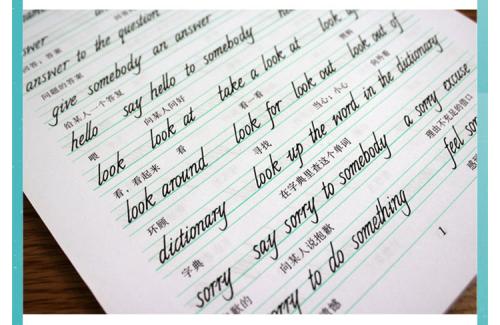 answer to the question
问题的答案
give somebody an answer
给某人一个答复
hello say hello to somebody
喂 向某人问好
look look at take a look at
看 · 看起来 看 看一看
look around look for look out look out of
环顾 寻找 当心,小心 向外看
dictionary look up the word in the dictionary
字典 在字典里查这个单词
sorry say sorry to somebody a sorry excuse
向某人说抱歉 理由不充足的借口
sorry to do something
1